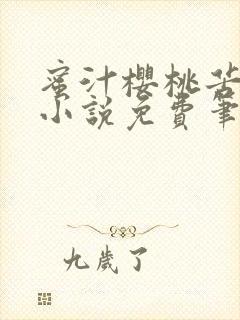 蜜汁櫻桃苦
小說免費筆
九歲了